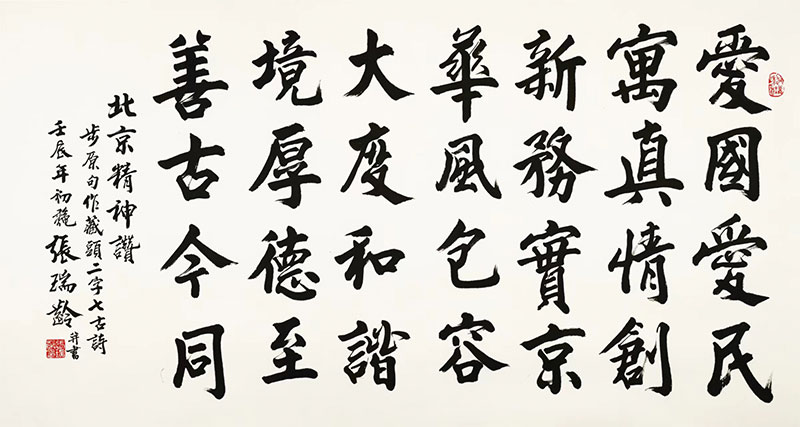 愛國愛民
寓真情創
新務實京
華風包容
大度和諧
境厚德至
善古今同
北京精神讃
步原句作藏頭二字七古詩
壬辰年初秋張瑞齡并書